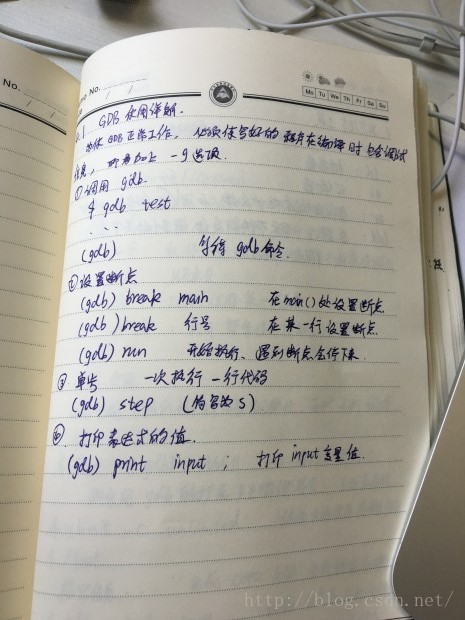 No.
No.
Mo Tu We Th Fr Sa Su
1 GDB 使用详解.
为使 GDB 正常工作, 必须使写好的 程序在编译时包含调试
信息, 即 加上 -g 选项.
① 调用 gdb.
$ gdb test
. . .
(gdb) 等待 gdb 命令.
② 设置断点
(gdb) break main 在main()处设置断点
(gdb) break 行号 在某一行设置断点.
(gdb) run 开始执行、遇到断点会停下来.
③ 单步 一次执行一行代码
(gdb) step (简写为 s)
打印表达式的值.
(gdb) print input ; 打印 input 变量值.
http://blog.csdn.net/